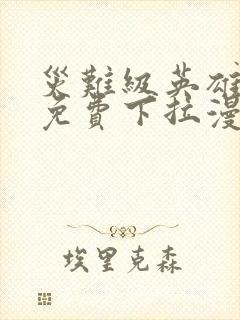 災難級英雄
免費下拉漫
埃里克森